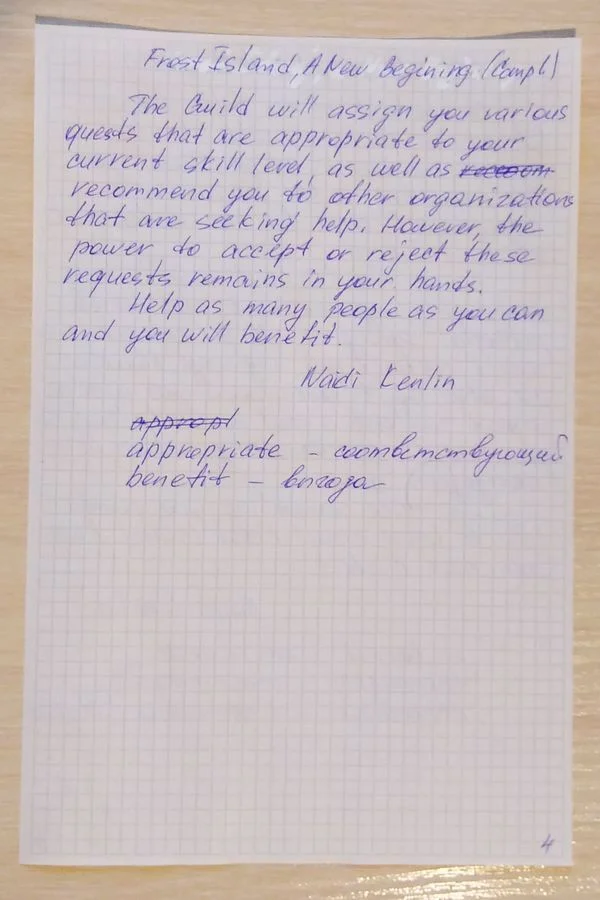 Frost Island, A New Begining (Compl)
The Guild will assign you various
quests that are appropriate to your
current skill level, as well as
recommend you to other organizations
that are seeking help. However, the
power to accept or reject these
requests remains in your hands.
Help as many people as you can
and you will benefit.
Naidi Kenlin
appropl
appropriate – соответствующий
benefit – выгода
4